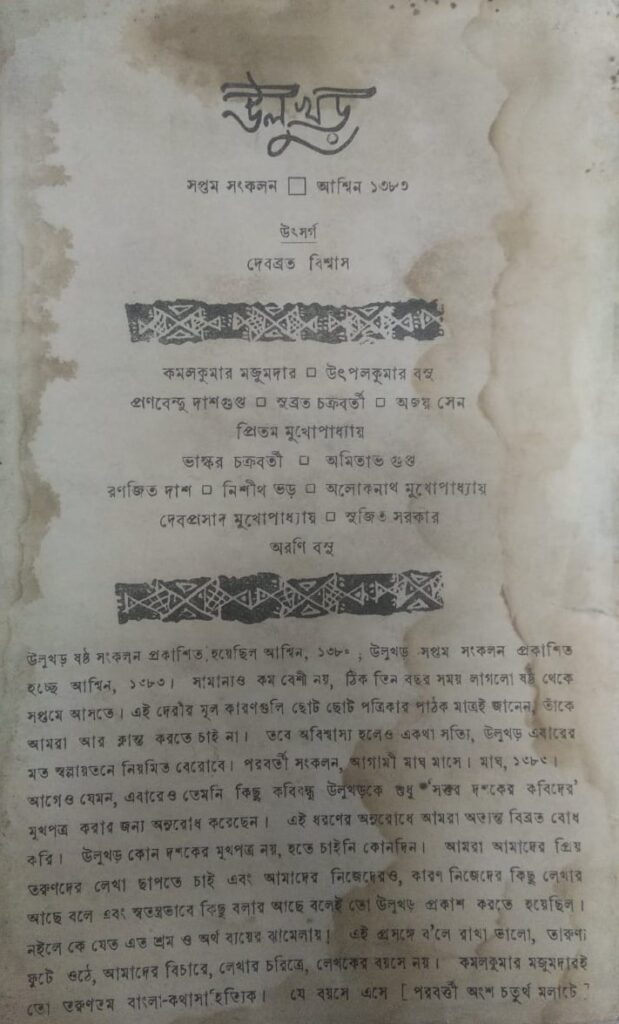 উলুখড়
সপ্তম সংকলন □ আশ্বিন ১৩৮৩
উৎসর্গ
দেবব্রত বিশ্বাস
কমলকুমার মজুমদার □ উৎপলকুমার বসু
প্রণবেন্দু দাশগুপ্ত □ সুব্রত চক্রবর্তী □ অজয় সেন
প্রিতম মুখোপাধ্যায়
ভাস্কর চক্রবর্তী □ অমিতাভ গুপ্ত
রণজিত দাশ □ নিশীথ ভড় □ অলোকনাথ মুখোপাধ্যায়
দেবপ্রসাদ মুখোপাধ্যায় □ সুজিত সরকার
অরণি বসু
উলুখড় ষষ্ঠ সংকলন প্রকাশিত হয়েছিল আশ্বিন, ১৩৮০ ; উলুখড় সপ্তম সংকলন প্রকাশিত
হচ্ছে আশ্বিন, ১৩৮৩। সামান্যও কম বেশী নয়, ঠিক তিন বছর সময় লাগলো ষষ্ঠ থেকে
সপ্তমে আসতে। এই দেরীর মূল কারণগুলি ছোট ছোট পত্রিকার পাঠক মাত্রই জানেন, তাঁকে
আমরা আর ক্লান্ত করতে চাই না। তবে অবিশ্বাস্য হলেও একথা সত্যি, উলুখড় এবারের
মত স্বল্পায়তনে নিয়মিত বেরোবে। পরবর্তী সংকলন, আগামী মাঘ মাসে। মাঘ, ১৩৮৩।
আগেও যেমন, এবারেও তেমনি কিছু কবিবন্ধু উলুখড়কে শুধু 'সত্তর দশকের কবিদের'
মুখপত্র করার জন্য অনুরোধ করেছেন। এই ধরণের অনুরোধে আমরা অত্যন্ত বিব্রত বোধ
করি। উলুখড় কোন দশকের মুখপত্র নয়, হতে চাইনি কোনদিন। আমরা আমাদের প্রিয়
তরুণদের লেখা ছাপতে চাই এবং আমাদের নিজেদেরও, কারণ নিজেদের কিছু লেখার
আছে বলে এবং স্বতন্ত্রভাবে কিছু বলার আছে বলেই তো উলুখড় প্রকাশ করতে হয়েছিল।
নইলে কে যেত এত শ্রম ও অর্থ ব্যয়ের ঝামেলায়! এই প্রসঙ্গে ব'লে রাখা ভালো, তারুণ্য
ফুটে ওঠে, আমাদের বিচারে, লেখার চরিত্রে, লেখকের বয়সে নয়। কমলকুমার মজুমদারই
তো তরুণতম বাংলা-কথাসাহিত্যিক। যে বয়সে এসে [ পরবর্ত্তী অংশ চতুর্থ মলাটে ]